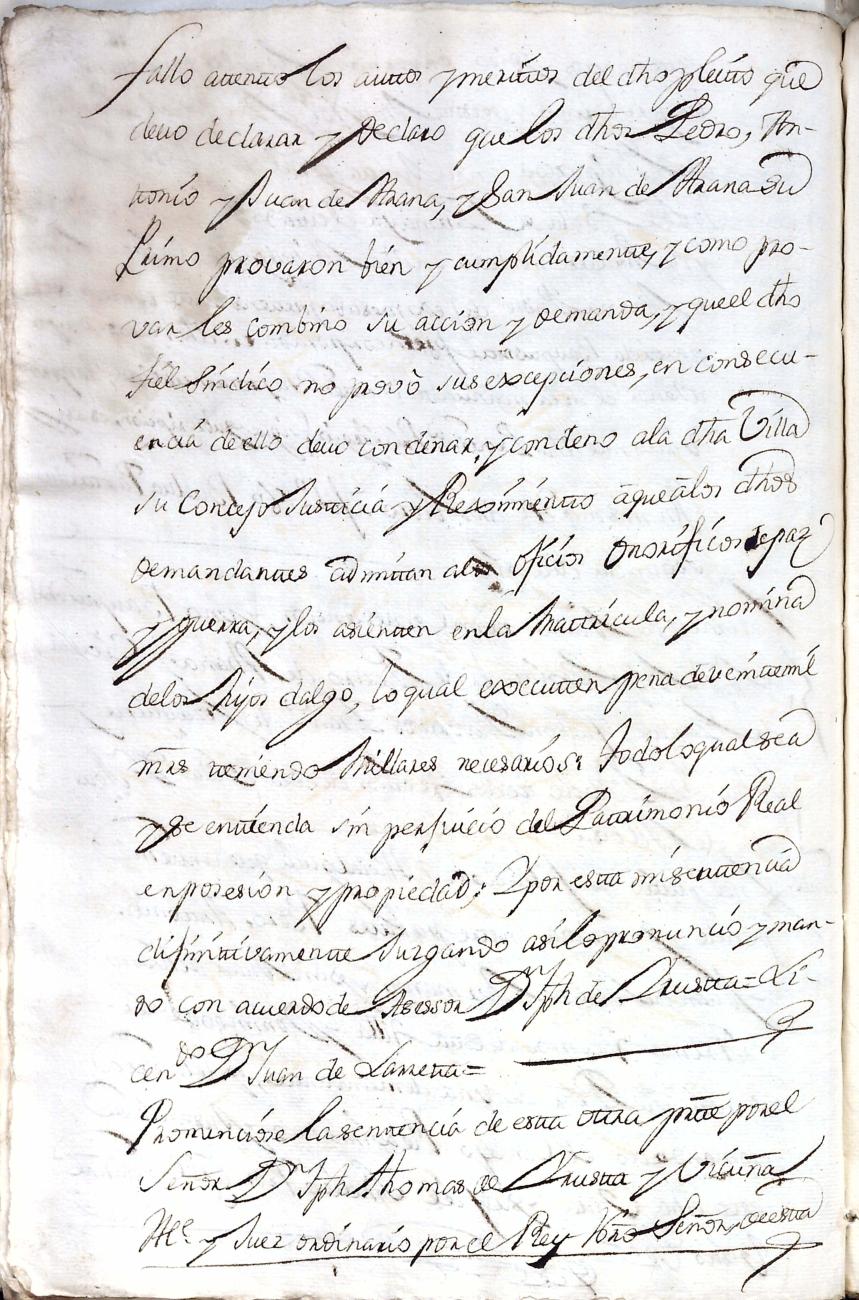 fallo attento los auttos y merittos del dho pleitto que
devo declarar y declaro que los dhos Pedro, An-
ttonio y Juan de Arana, y San Juan de Arana su
Primo provaron bien y cumplidamentte, y como pro-
var les combino su acción y demanda, y que el dho
fiel Síndico no provó sus excepciones, en consecu-
encia de ello devo condenar, y condeno a la dha Villa
su Concejo Justticia y Reximientto a que a los dhos
demandanttes admittan a los oficios onoríficos de paz
y guerra, y los asientten en la Mattrícula, y nomina
de los hijos dalgo, lo qual executten pena de veintte mil
mrs tteniendo Millares necesarios: Todo lo qual sea
y se enttienda sin perjuicio del Pattrimonio Real
en posesión y propiedad; Y por estta mi senttencia
difinittivamentte Juzgando así lo pronunció y man-
do con acuerdo de Asessor D Jph de Urustta = Li-
cendo D Juan de Larretta =
Pronuncióse la senttencia de estta ottra Partte por el
Señor D Jph Thomas de Urustta y Vicuña
Alle y Juez ordinario por el Rey Nro Señor, de estta